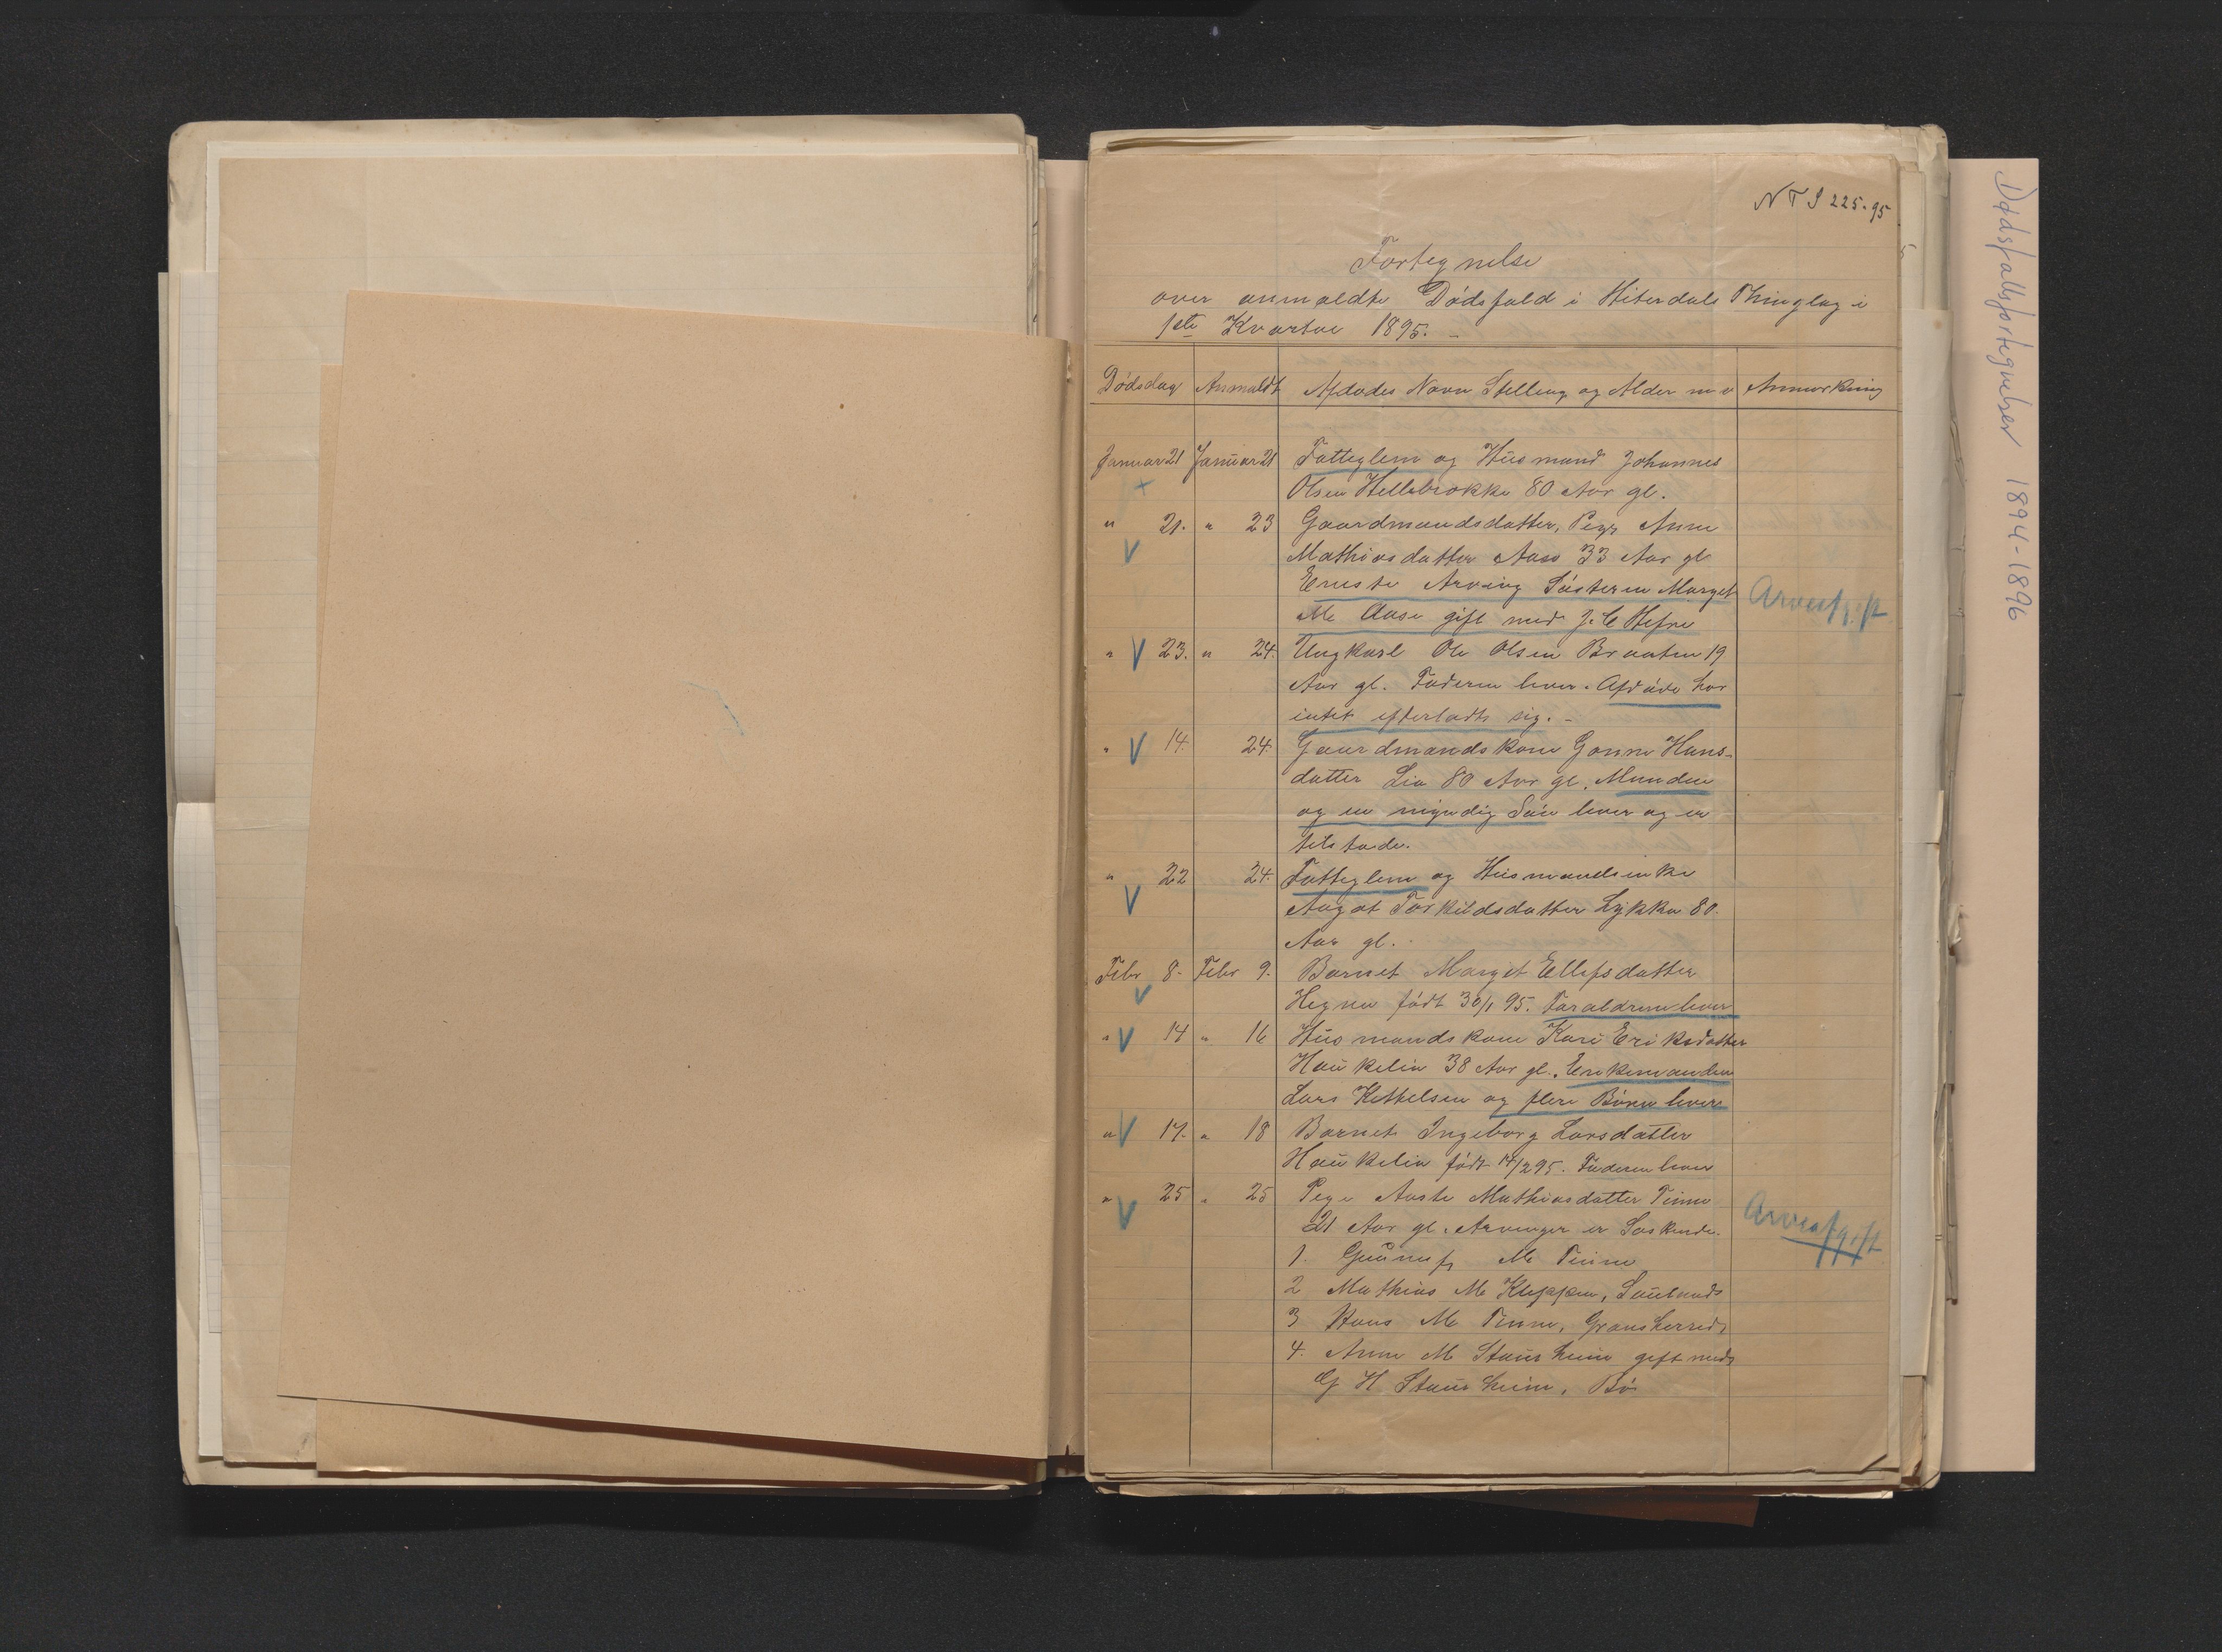 NTS 225-95
Fortegnelse
over anmeldte Dødsfald i Hiterdals Thinglag i
1ste Kvartal 1895. -
Dødsdag Anmeldt Afdødes Navn Stelling og Alder m v Anmerkning
Januar 21 Januar 21 Fatteglem og Husmand Johannes
Olsen Hellebrokke 80 Aar gl.
" 21. " 23 Gaardmandsdatter, Pige Anne
Mathiasdatter Aase 33 Aar gl
Eneste Arving Søsteren Marget Arveafgift
M. Aase gift med J. C Hefre
" 23. " 24. Ungkarl Ole Olsen Braaten 19
Aar gl. Faderen lever. Afdøde har
intet efterladt sig. -
" 14. 24. Gaardmandskone Gonne Hans-
datter Lia 80 Aar gl. Manden
og en myndig Søn lever og er
tilstede.
" 22 24. Fatteglem og Husmandsenke
Aagot Torkildsdatter Lykka 80.
Aar gl.
Febr 8. Febr 9. Barnet Marget Ellefsdatter
Hegna født 30/1 95. Foraldrene lever
" 14 " 16 Husmandskone Kari Eriksdatter
Haukelia 38 Aar gl. Enkemanden
Lars Kettelsen og flere Børn lever
" 17. " 18 Barnet Ingeborg Larsdatter
Haukelia født 14/2 95. Faderen lever
" 25 " 25 Pige Aaste Mathiasdatter Tinne
21 Aar gl. Arvinger er Søskende. Arveafgift
1. M. Tinne
2 Mathias M. Kleppen, Sauland
3 Hans M. Tinne, Gransherred
4. Anne M Stausheim gift med
G H Stausheim, Bø
Dødsfallsfortegnelser 1894-1896